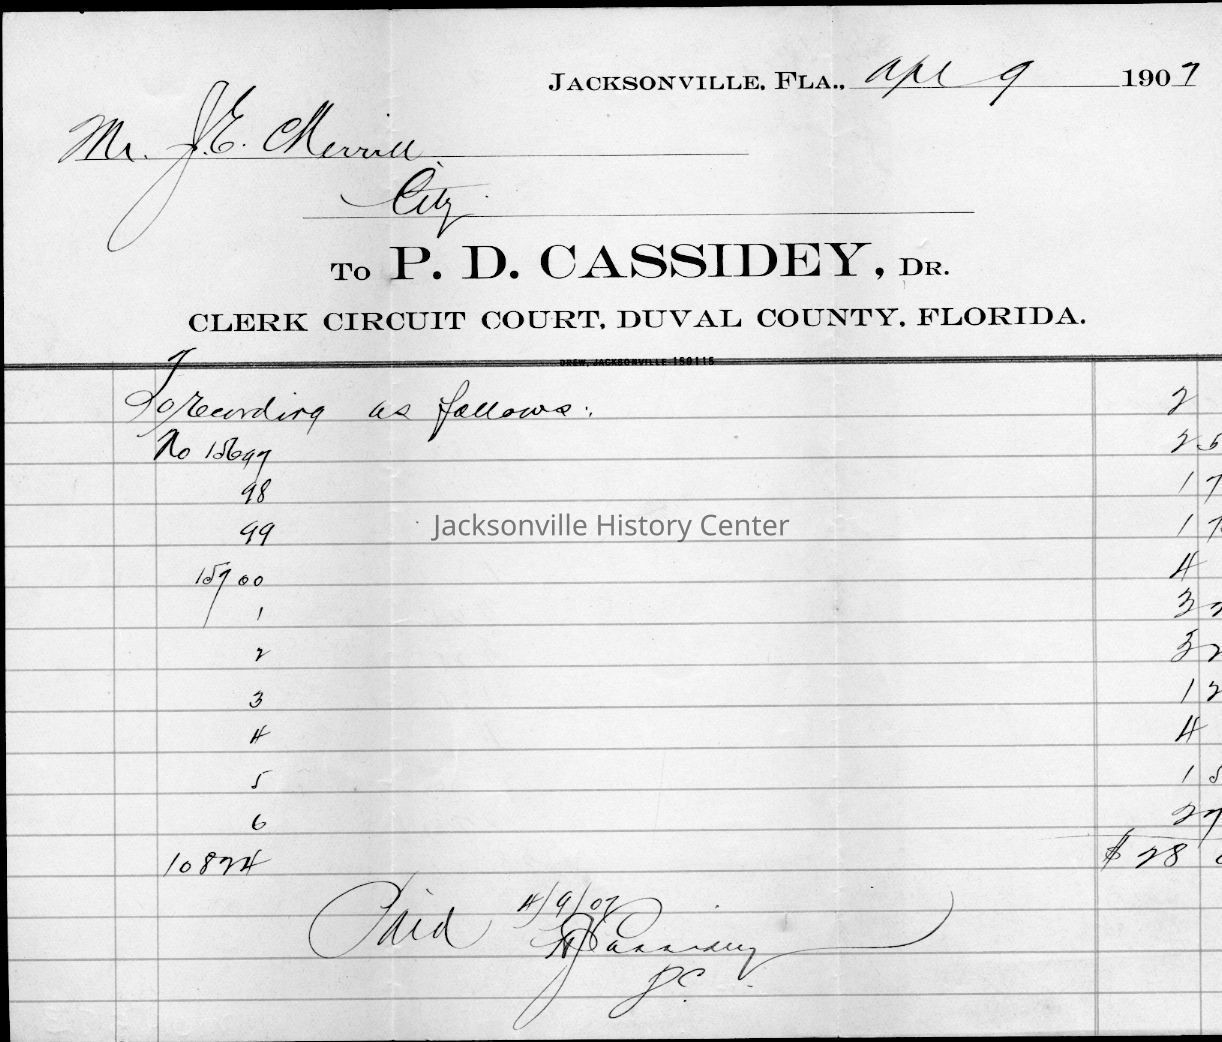 JACKSONVILLE, FLA., Apl 9 1907
Mr. J.E. Merrill
City
To P. D. CASSIDEY, DR.
CLERK CIRCUIT COURT, DUVAL COUNTY, FLORIDA.
DREW, JACKSONVILLE 150115
To recording as follows: 2
No 15697 2 5
98 1 7
99 1 7
Jacksonville History Center
15700 4
1 3 2
2 3 2
3 1 2
4 4
5 1 5
6 2 7
10824 $ 28
Paid 4/9/07
Cassidey
D.C.